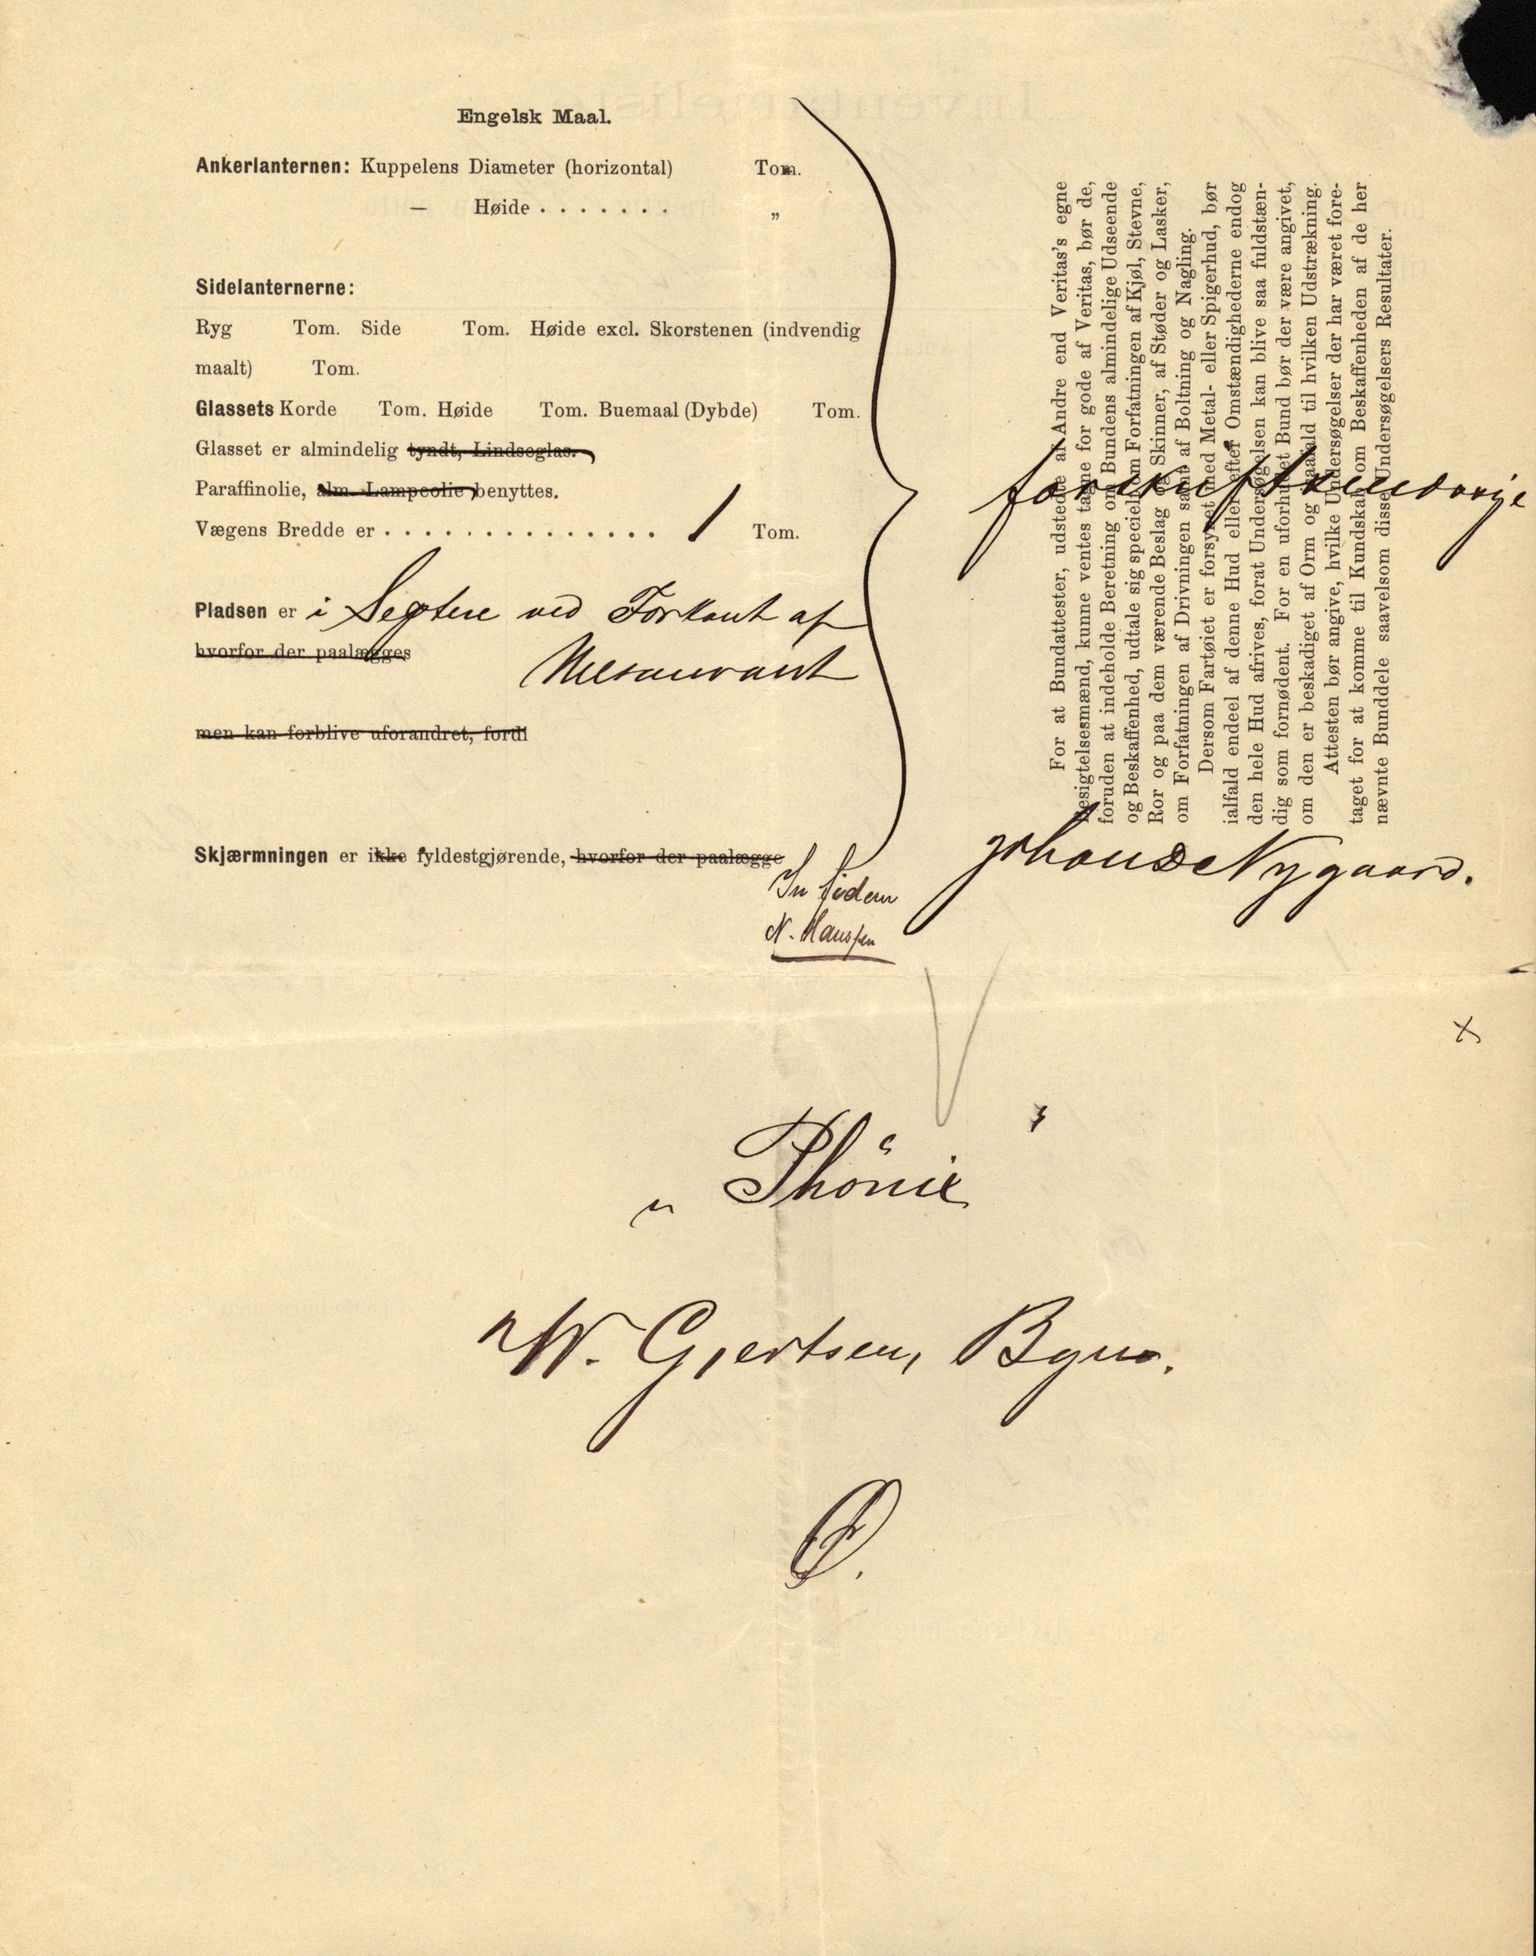 Engelsk Maal.
Ankerlanternen: Kuppelens Diameter (horizontal) Tom.
— Høide . . . . . . . „
Sidelanternerne:
Ryg Tom. Side Tom. Høide excl. Skorstenen (indvendig
maalt) Tom.
Glassets Korde Tom. Høide Tom. Buemaal (Dybde) Tom.
Glasset er almindelig tyndt, Lindseglas.
Paraffinolie, alm. Lampeolie benyttes.
Vægens Bredde er . . . . . . . . . . . . . . . 1 Tom.
Pladsen er i ved Forkant af
hvorfor der paalægges
men kan forblive uforandret, fordi
Skjærmningen er ikke fyldestgjørende, hvorfor der paalægge
In fidem
N. Hanssen
For at Bundattester, udstedte af Andre end Veritas's egne
Besigtelsesmænd, kunne ventes tagne for gode af Veritas, bør de,
foruden at indeholde Beretning om Bundens almindelige Udseende
og Beskaffenhed, udtale sig specielt om Forfatningen af Kjøl, Stevne,
Ror og paa dem værende Beslag og Skinner, af Støder og Lasker,
om Forfatningen af Drivningen samt af Boltning og Nagling.
Dersom Fartøiet er forsynet med Metal- eller Spigerhud, bør
ialfald endeel af denne Hud eller efter Omstændighederne endog
den hele Hud afrives, forat Undersøgelsen kan blive saa fuldstæn-
dig som fornødent. For en uforhudet Bund bør der være angivet,
om den er beskadiget af Orm og isaafald til hvilken Udstrækning.
Attesten bør angive, hvilke Undersøgelser der har været fore-
taget for at komme til Kundskab om Beskaffenheden af de her
nævnte Bunddele saavelsom disse Undersøgelsers Resultater.
Johan D Nygaard.
„Phönix"
W. Gjertsen,